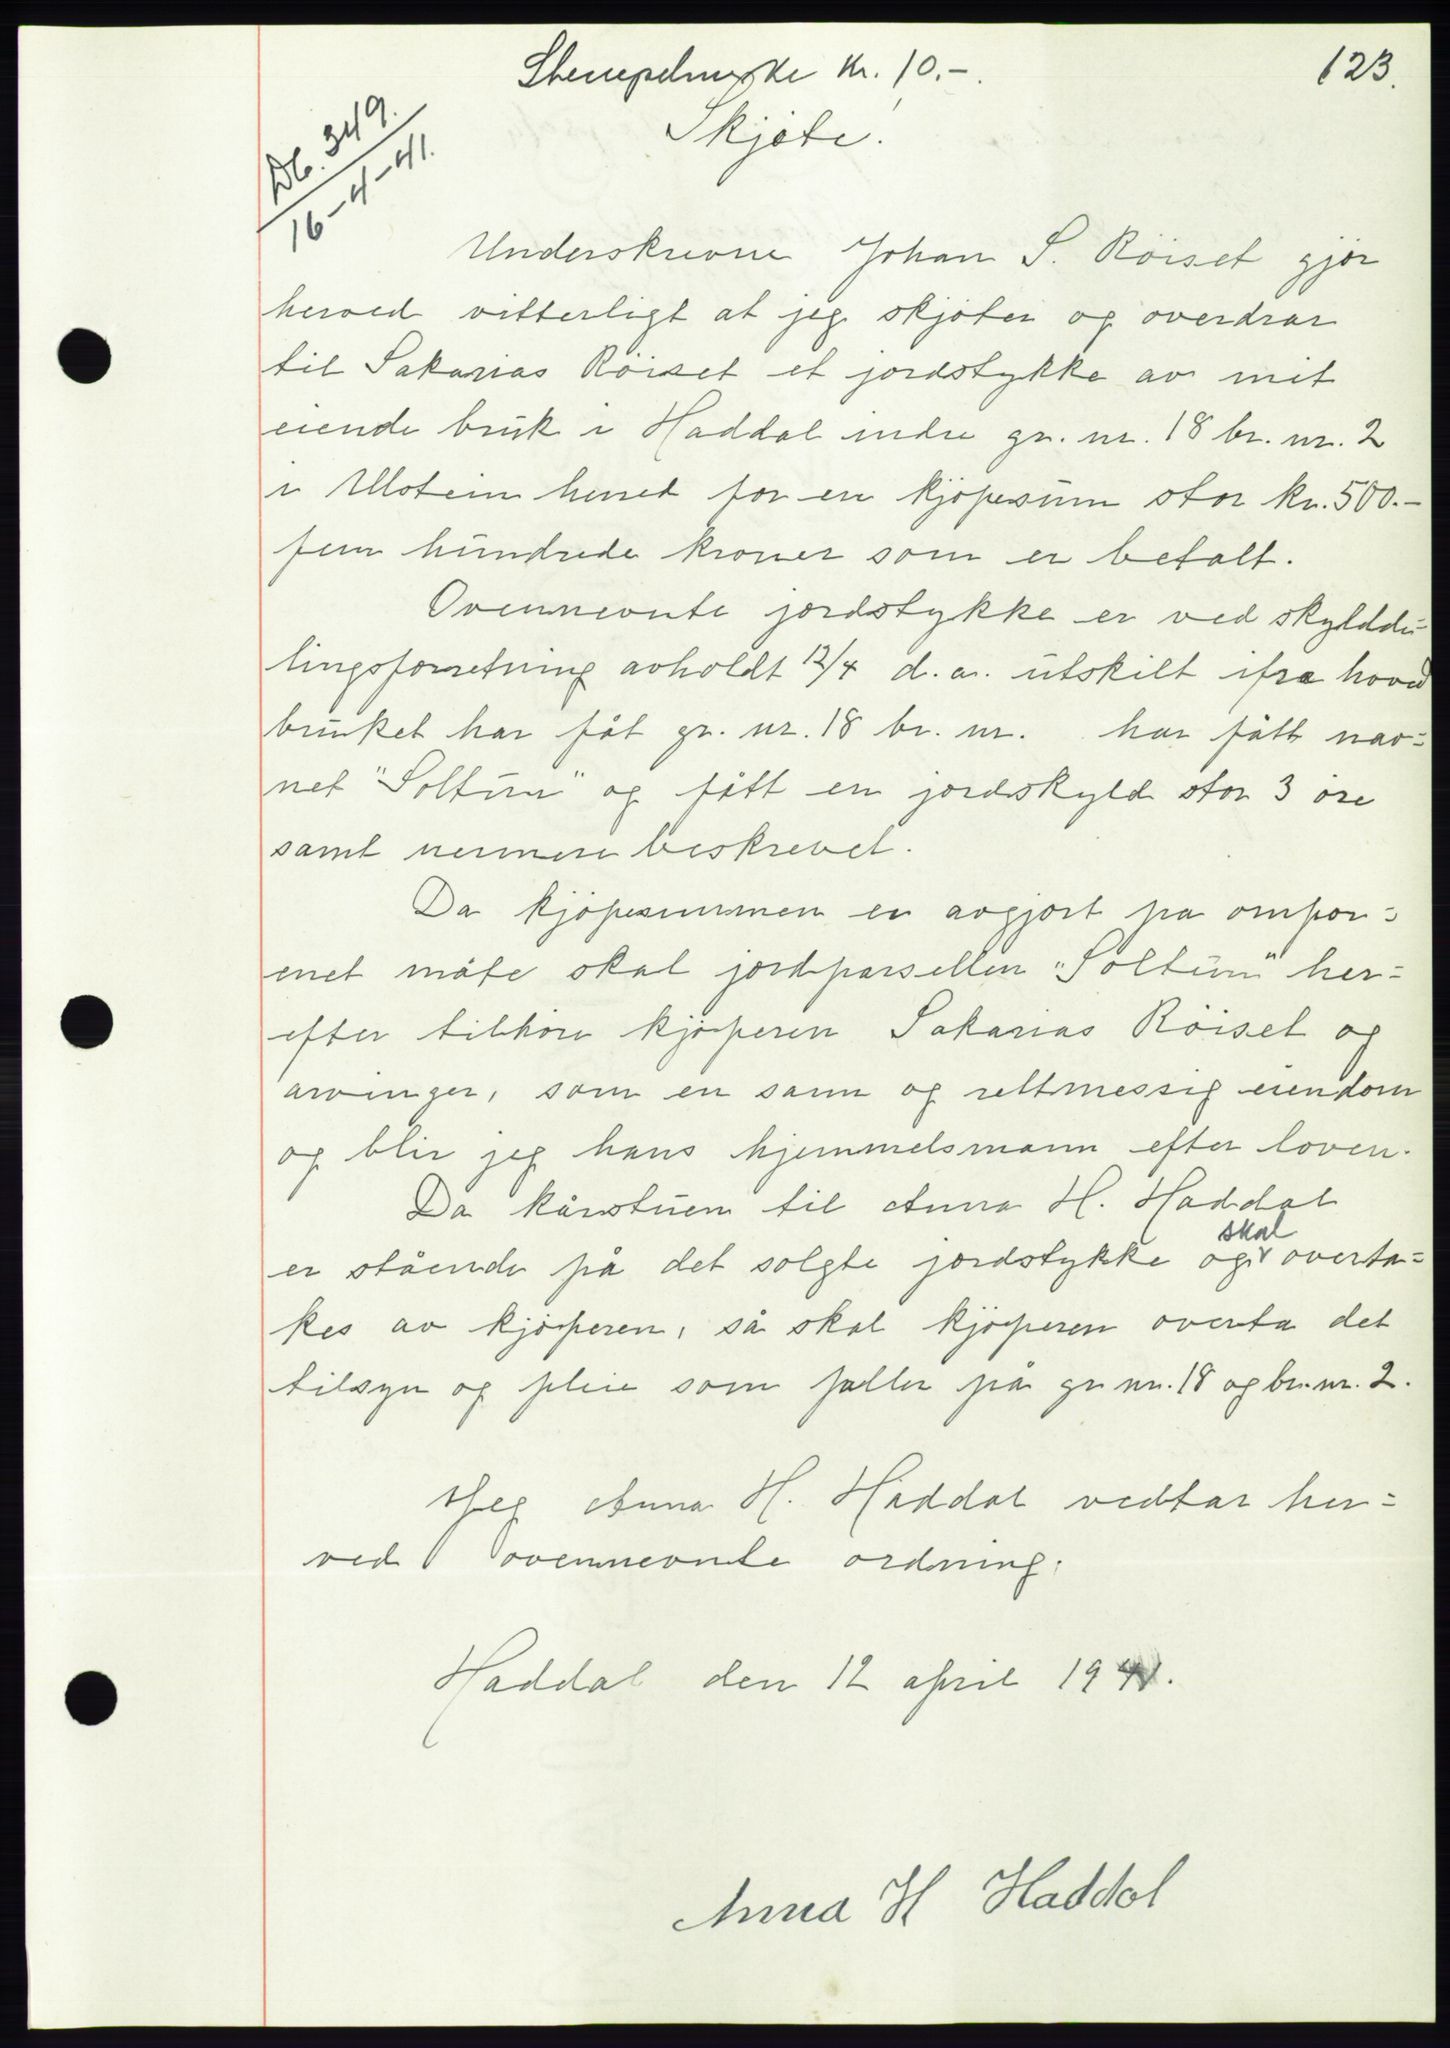 Stempelmerke kr. 10.-.
123.
Skjøte.
Db. 349.
16-4-41.
Underskrevne Johan S. Röiset gjör
herved vitterligt at jeg skjöter og overdrar
til Sakarias Röiset et jordstykke av mit
eiende bruk i Haddal indre gr. nr. 18 br. nr. 2
i Ulstein herred for en kjöpesum stor kr. 500.-
fem hundrede kroner som er betalt.
Ovennevnte jordstykke er ved skyldde=
lingsforretning avholdt 12/4 d. a. utskilt ifra hoved
bruket har fåt gr. nr. 18 br. nr. har fått nav=
net "Soltun" og fått en jordskyld stor 3 öre
samt nermere beskrevet.
Da kjöpesummen er avgjort pa omfor=
enet måte skal jordparsellen "Soltun" her=
efter tilhöre kjöperen Sakarias Röiset og
arvinger, som en sann og rettmessig eiendom
og blir jeg hans hjemmelsmann efter loven.
Da kårstuen til Anna H. Haddal
er stående på det solgte jordstykke og skal overta=
kes av kjöperen, så skal kjöperen overta det
tilsyn og pleie som faller på gr nr. 18 og br. nr. 2.
Jeg Anna H. Haddal vedtar her=
ved ovennevnte ordning.
Haddal den 12 april 1941.
Anna H Haddal